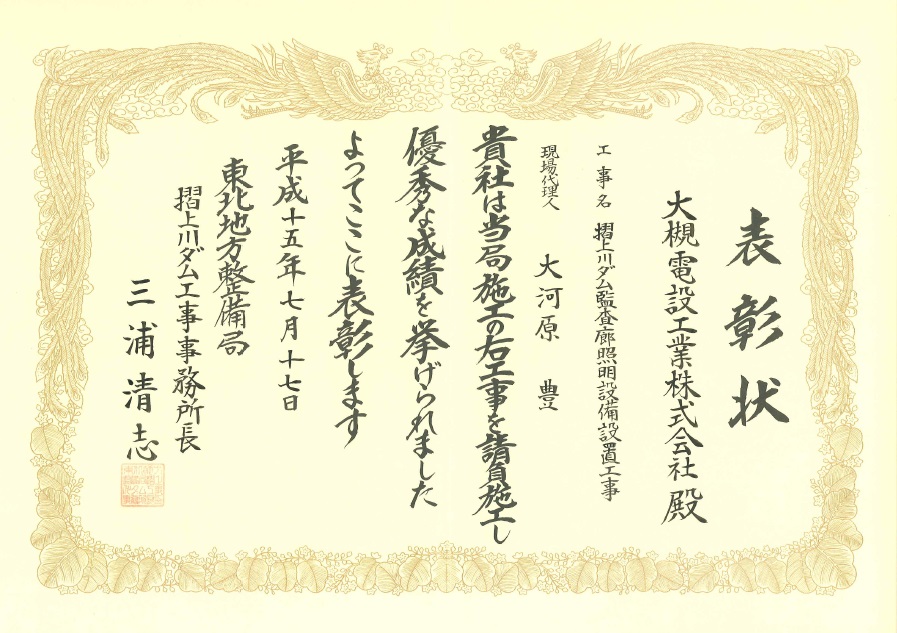 表彰状
大槻電設工業株式会社 殿
工事名 摺上川ダム監査廊照明設備設置工事
現場代理人 大河原 豊
貴社は当局施工の右工事を請負施工し
優秀な成績を挙げられました
よってここに表彰します
平成十五年七月十七日
東北地方整備局
摺上川ダム工事事務所長
三浦清志